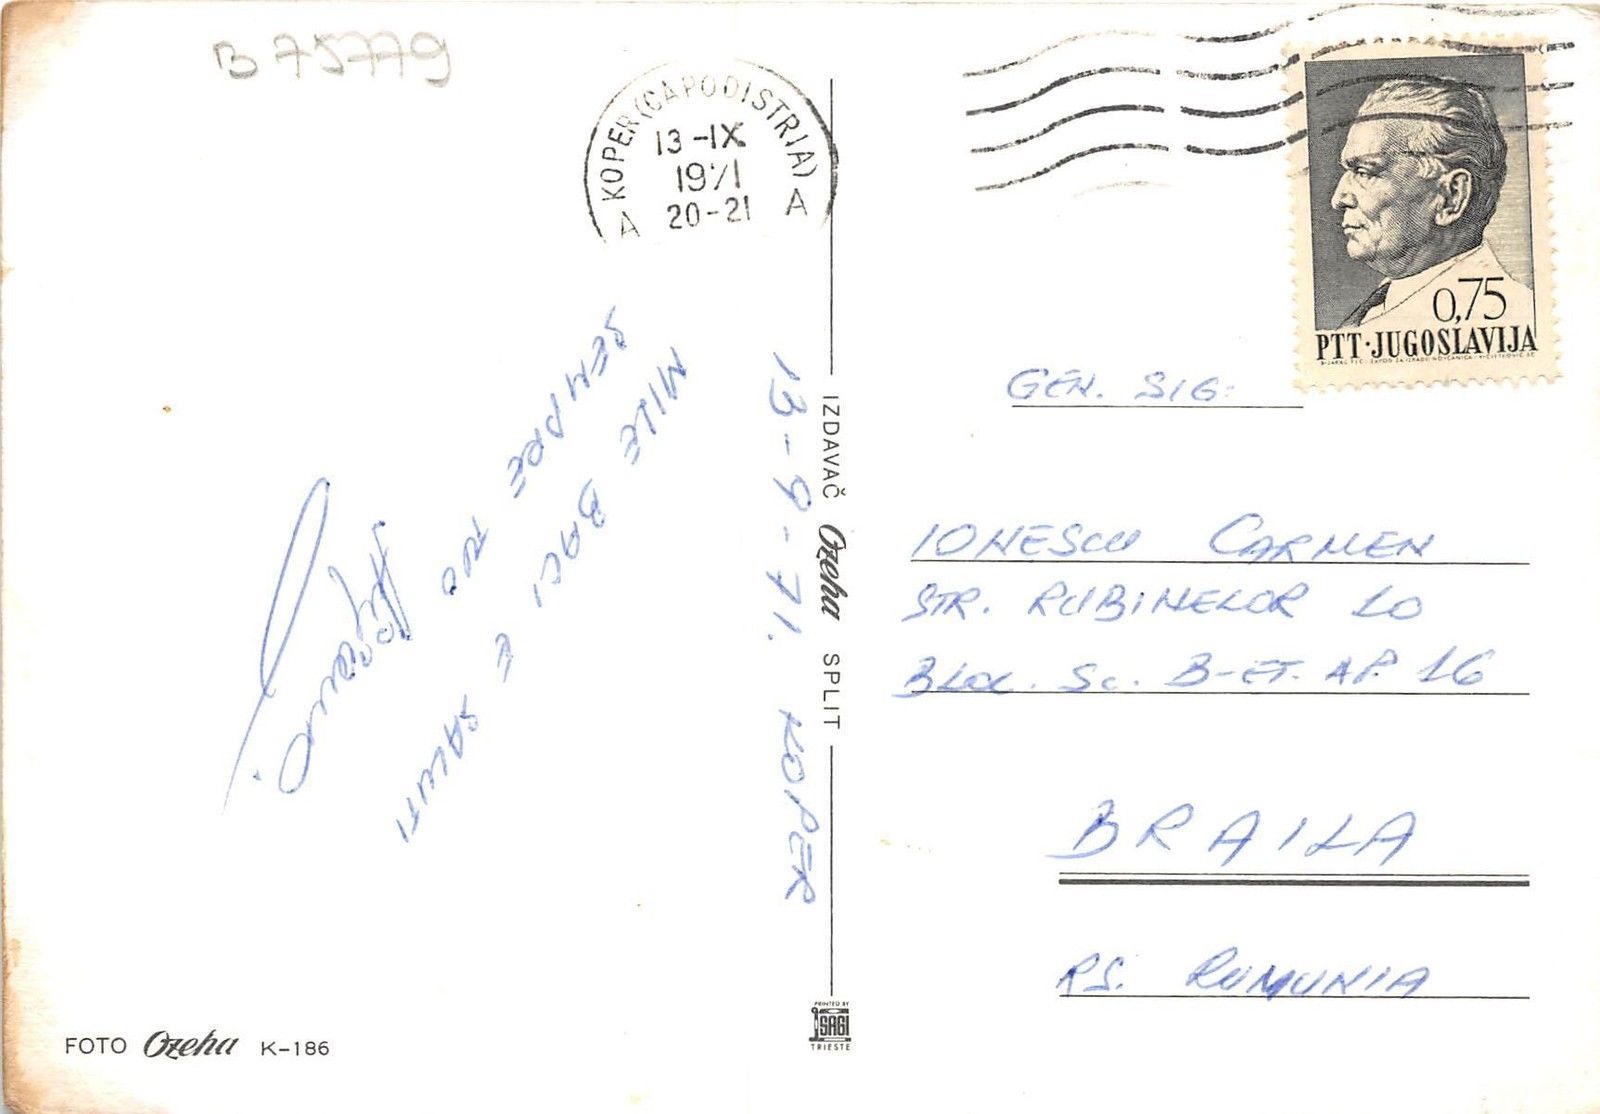 B 75779
KOPER (CAPODISTRIA)
13-IX
1971
20-21
A A
0,75
PTT·JUGOSLAVIJA
MILE BACI E SALUTI
SEMPRE TUO
13-9-71. KOPER
IZDAVAČ Ozeha SPLIT
GEN. SIG:
IONESCU CARMEN
STR. RUBINELOR 10
BLOC. SC. B-ET. AP. 16
BRAILA
RS. RUMUNIA
FOTO Ozeha K-186
PRINTED BY
SAGI
TRIESTE